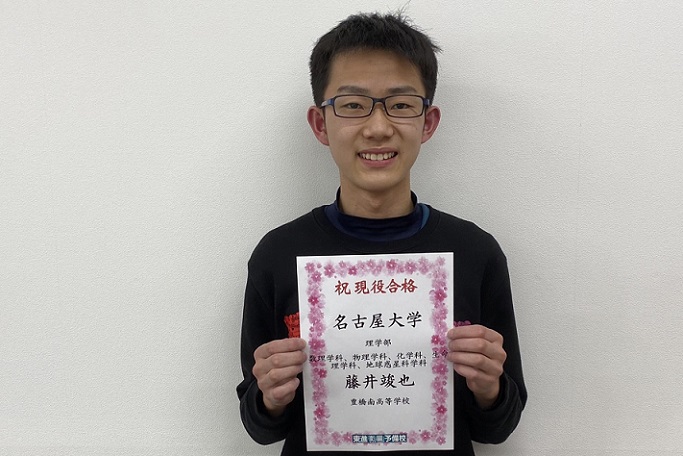 祝 現役合格
名古屋大学
理学部
数理学科、物理学科、化学科、生命
理学科、地球惑星科学科
藤井竣也
豊橋南高等学校
東進衛星予備校